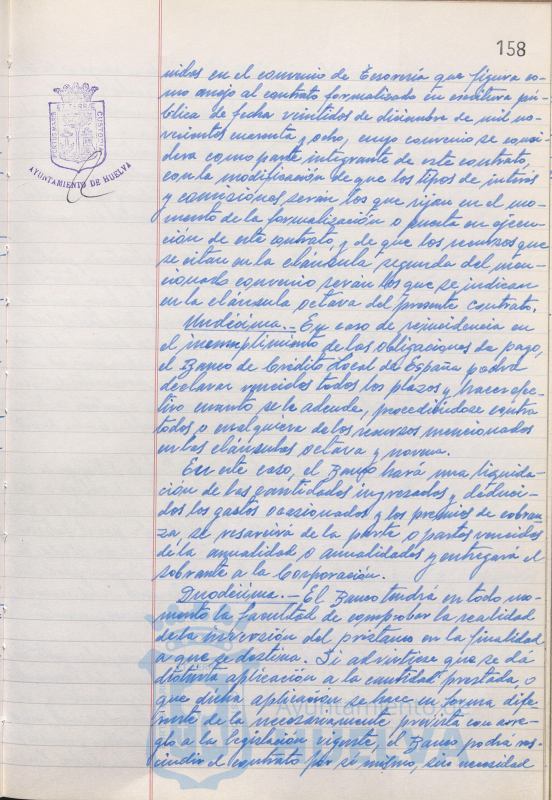 158
AYUNTAMIENTO DE HUELVA
nidas en el convenio de Tesorería que figura co-
mo anejo al contrato formalizado en escritura pú-
blica de fecha veintidos de diciembre de mil no-
vecientos cuarenta y ocho, cuyo convenio se consi-
dera como parte integrante de este contrato,
con la modificación de que los tipos de interés
y comisiones serán los que rijan en el mo-
mento de la formalización o puesta en ejecu-
ción de este contrato, y de que los recursos que
se citan en la cláusula segunda del men-
cionado convenio serán los que se indican
en la cláusula octava del presente contrato.
Undécima.- En caso de reincidencia en
el incumplimiento de las obligaciones de pago,
el Banco de Crédito Local de España podrá
declarar vencidos todos los plazos y hacer efec-
tivo cuanto se le adeude, procediéndose contra
todos o cualquiera de los recursos mencionados
en las cláusulas octava y novena.
En este caso, el Banco hará una liquida-
ción de las cantidades ingresadas y deduci-
dos los gastos ocasionados y los premios de cobran-
za, se resarcirá de la parte o partes vencidas
de la anualidad o anualidades y entregará el
sobrante a la Corporación.
Duodécima.- El Banco tendrá en todo mo-
mento la facultad de comprobar la realidad
de la inversión del préstamo en la finalidad
a que se destina. Si advirtiese que se dá
distinta aplicación a la cantidad prestada, o
que dicha aplicación se hace en forma dife-
rente de la necesariamente prevista con arre-
glo a la legislación vigente, el Banco podrá res-
cindir el contrato por sí mismo, sin necesidad
Ayuntamiento de
HUELVA